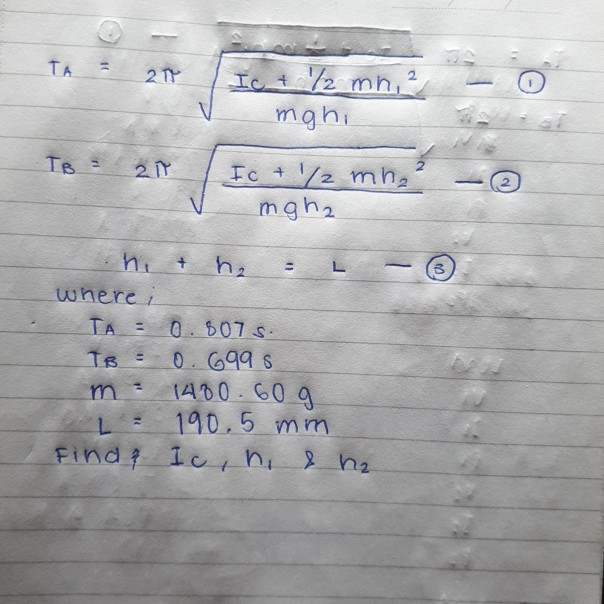 TA = 2π √ Ic + 1/2 mh₁² / mgh₁ — ①
TB = 2π √ Ic + 1/2 mh₂² / mgh₂ — ②
h₁ + h₂ = L — ③
where;
TA = 0.807 s.
TB = 0.699 s
m = 1480.60 g
L = 190.5 mm
Find; Ic, h₁ & h₂